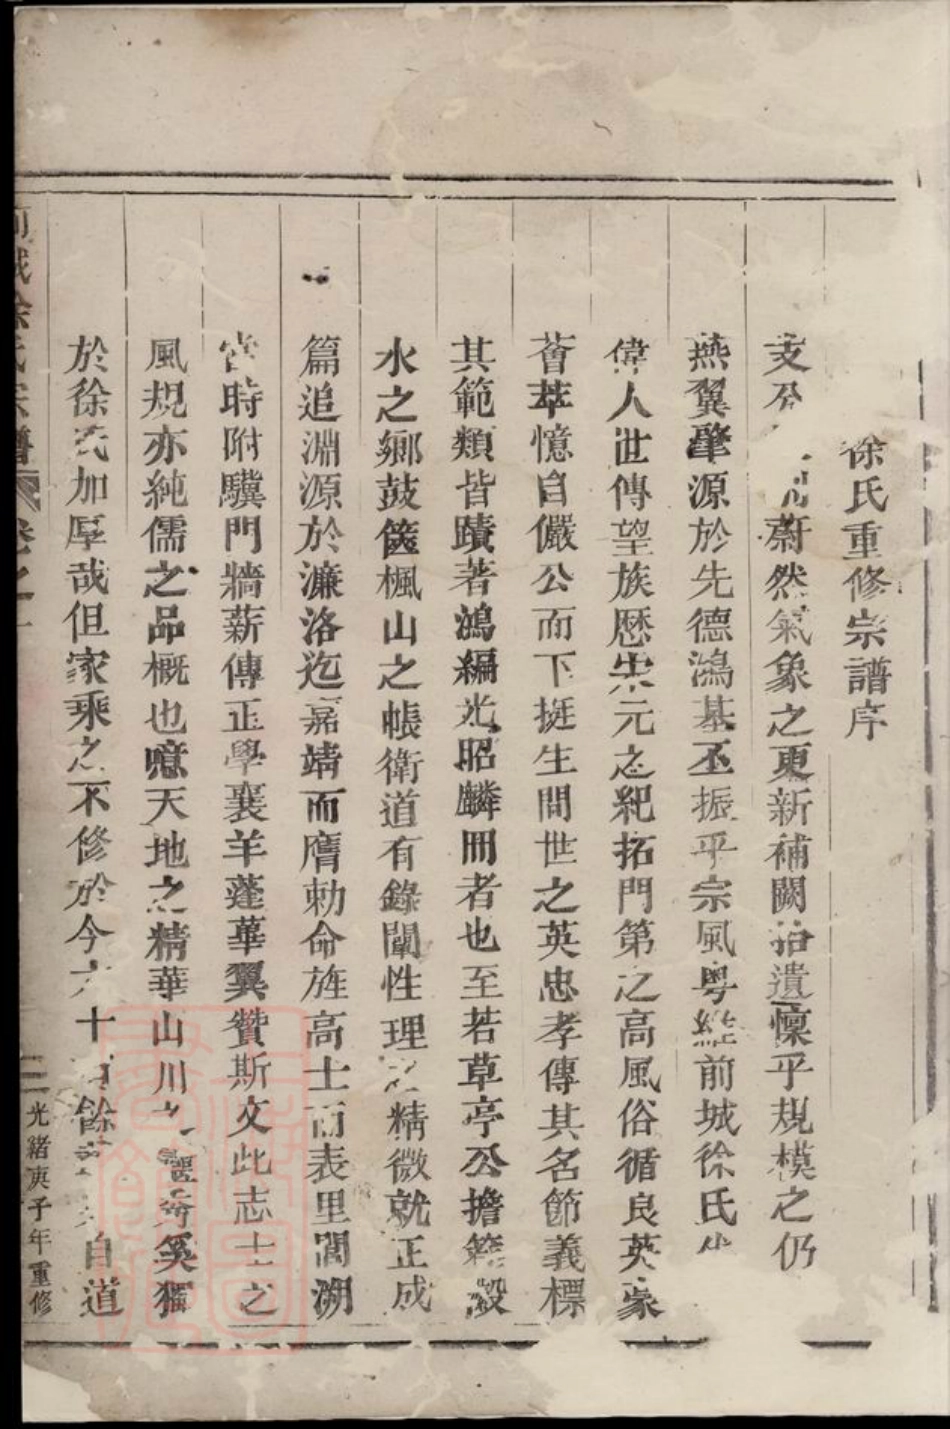 徐氏重修宗譜序
支分蔚然氣象之更新補闕拾遺懍乎規模之仍
燕翼肇源於先德鴻基丕振乎宗風粵維前城徐氏
偉人世傳望族歷宋元之紀拓門第之高風俗循良英豪
薈萃憶自儼公而下挺生間世之英忠孝傳其名節義標
其範類皆蹟著鴻編光昭麟冊者也至若草亭公擔簦瀫
水之鄉鼓篋楓山之帳衛道有錄闡性理之精微就正成
篇追淵源於濂洛迄嘉靖而膺勅命旌高士而表里閭溯
當時附驥門牆薪傳正學襄羊蓬蓽翼贊斯文此志士之
風規亦純儒之品概也噫天地之精華山川之靈秀奚獨
於徐氏加厚哉但家乘之不修於今六十餘自道
前城徐氏宗譜 卷之一
二 光緒庚子年重修